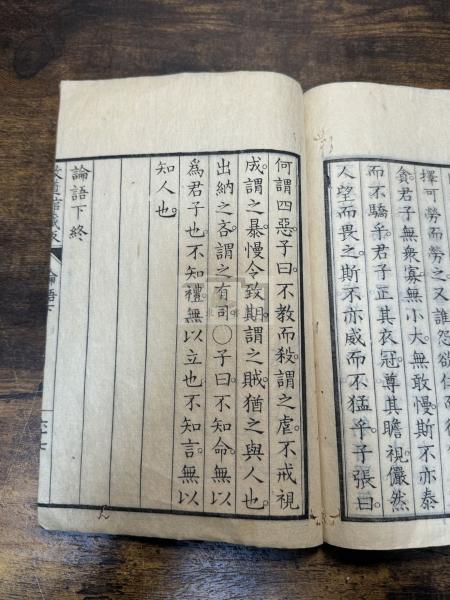 擇可勞而勞之。又誰怨。欲仁而得
貪。君子無衆寡。無小大。無敢慢。斯不亦泰
而不驕乎。君子正其衣冠。尊其瞻視。儼然
人望而畏之。斯不亦威而不猛乎。子張曰。
何謂四惡。子曰。不教而殺。謂之虐。不戒視
成。謂之暴。慢令致期。謂之賊。猶之與人也。
出納之吝。謂之有司〇子曰。不知命。無以
爲君子也。不知禮。無以立也。不知言。無以
知人也。
論語下終
論語下